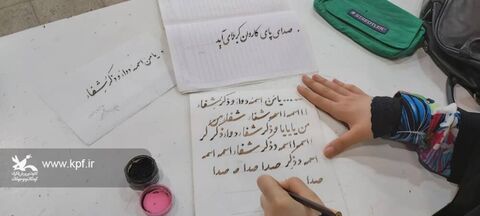 صدای پای کاروان کربلا می آید
STAEDTLER
یا من اسمه دواء و ذکره شفاء
یا من اسمه دواء و ذکره شفاء
ا اسمه ا اسمه شفاء شفا
من یا یا یا و ذکر شفاء دواء ذکر کر
اسمه ا اسمه اسمه شفاء اسمه اسمه
اسمه و ذکر صدا صدا ه صدا
صدا
www.kpf.ir